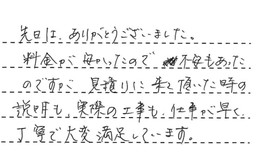 先日は、ありがとうございました。
料金が安かったので 不安もあった
のですが 見積りに来て頂いた時の
説明も、実際の工事も、仕事が早く、
丁寧で大変満足しています。